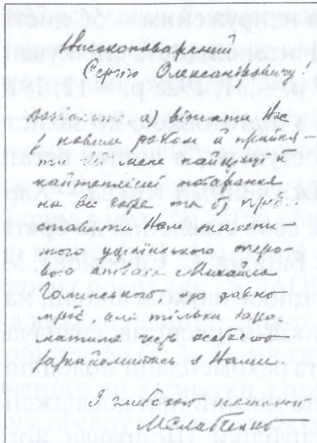 Високоповажаний
Сергію Олександровичу!
Дозвольте а) вітати Вас
з новим роком й прийня-
ти від мене найщиріші й
найтепліші побажання
на все добре та б) пред-
ставити Вам талани-
того українського оперо-
вого співака Михайла
Голинського, що давно
мріє, але тільки
особисто
зазнайомитись з Вами.
З глибокою пошаною